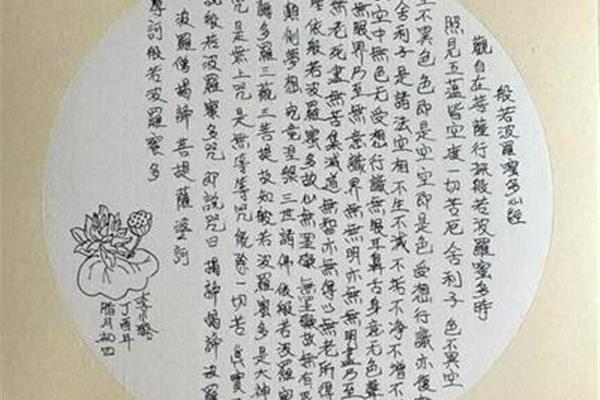 般若波羅蜜多心經
觀自在菩薩行深般若波羅蜜多時
照見五蘊皆空度一切苦厄舍利子色不異空
不異色色即是空空即是色受想行識亦復
舍利子是諸法空相不生不滅不垢不淨不增不
空中無色无受想行識無眼耳鼻舌身意无色聲
無眼界乃至無意識界無無明亦無無明盡乃至
無老死盡無苦集滅道無智亦無得以無老所得
埵依般若波羅蜜多故心無罣礙無罣礙故無有恐
顛倒夢想究竟涅槃三世諸佛依般若波羅蜜
耨多羅三藐三菩提故知般若波羅蜜多是大神
咒是無上咒是無等等咒能除一切苦真實
說般若波羅蜜多咒即說咒曰揭諦揭諦波羅
波羅僧揭諦菩提薩婆訶
摩訶般若波羅蜜多
丁酉年
腊月初四